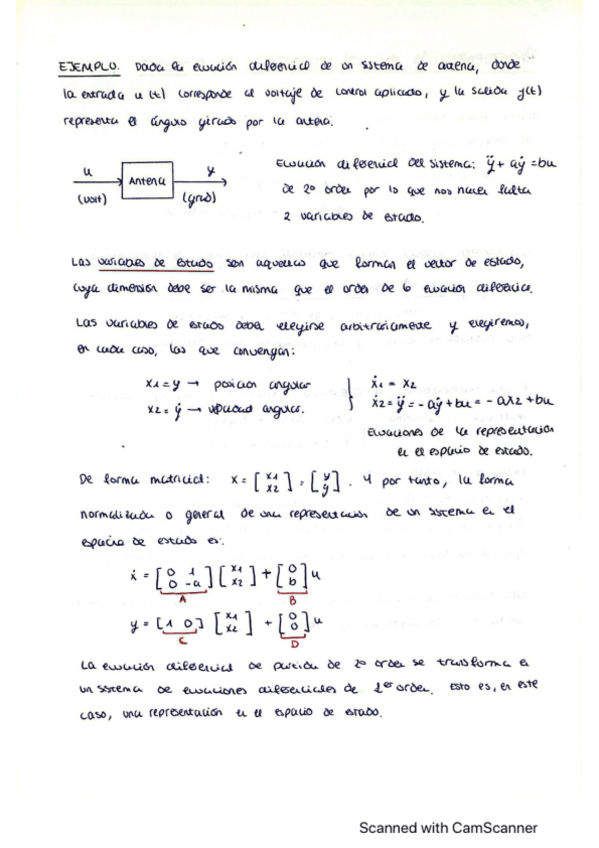 EJEMPLO. Dada la ecuación diferencial de un sistema de antena, donde
la entrada u(t) corresponde al voltaje de control aplicado, y la salida y(t)
representa el ángulo girado por la antena.
u y Ecuación diferencial del sistema: ÿ + aẏ = bu
Antena
(volt) (grad) de 2º orden por lo que nos hacen falta
2 variables de estado.
Las variables de estado son aquellas que forman el vector de estado,
cuya dimensión debe ser la misma que el orden de la ecuación diferencial.
Las variables de estado deben elegirse arbitrariamente y elegiremos,
en cada caso, las que convengan:
x1 = y → posición angular ẋ1 = x2
x2 = ẏ → velocidad angular. ẋ2 = ÿ = - aẏ + bu = - ax2 + bu
Ecuaciones de la representación
en el espacio de estado.
De forma matricial: x = [x1 x2] = [y ẏ]. Y por tanto, la forma
normalizada o general de una representación de un sistema en el
espacio de estado es:
ẋ = [0 1 0 -a] [x1 x2] + [0 b] u
A B
y = [1 0] [x1 x2] + [0 0] u
C D
La ecuación diferencial de partida de 2º orden se transforma en
un sistema de ecuaciones diferenciales de 1er orden. Esto es, en este
caso, una representación en el espacio de estado.
Scanned with CamScanner